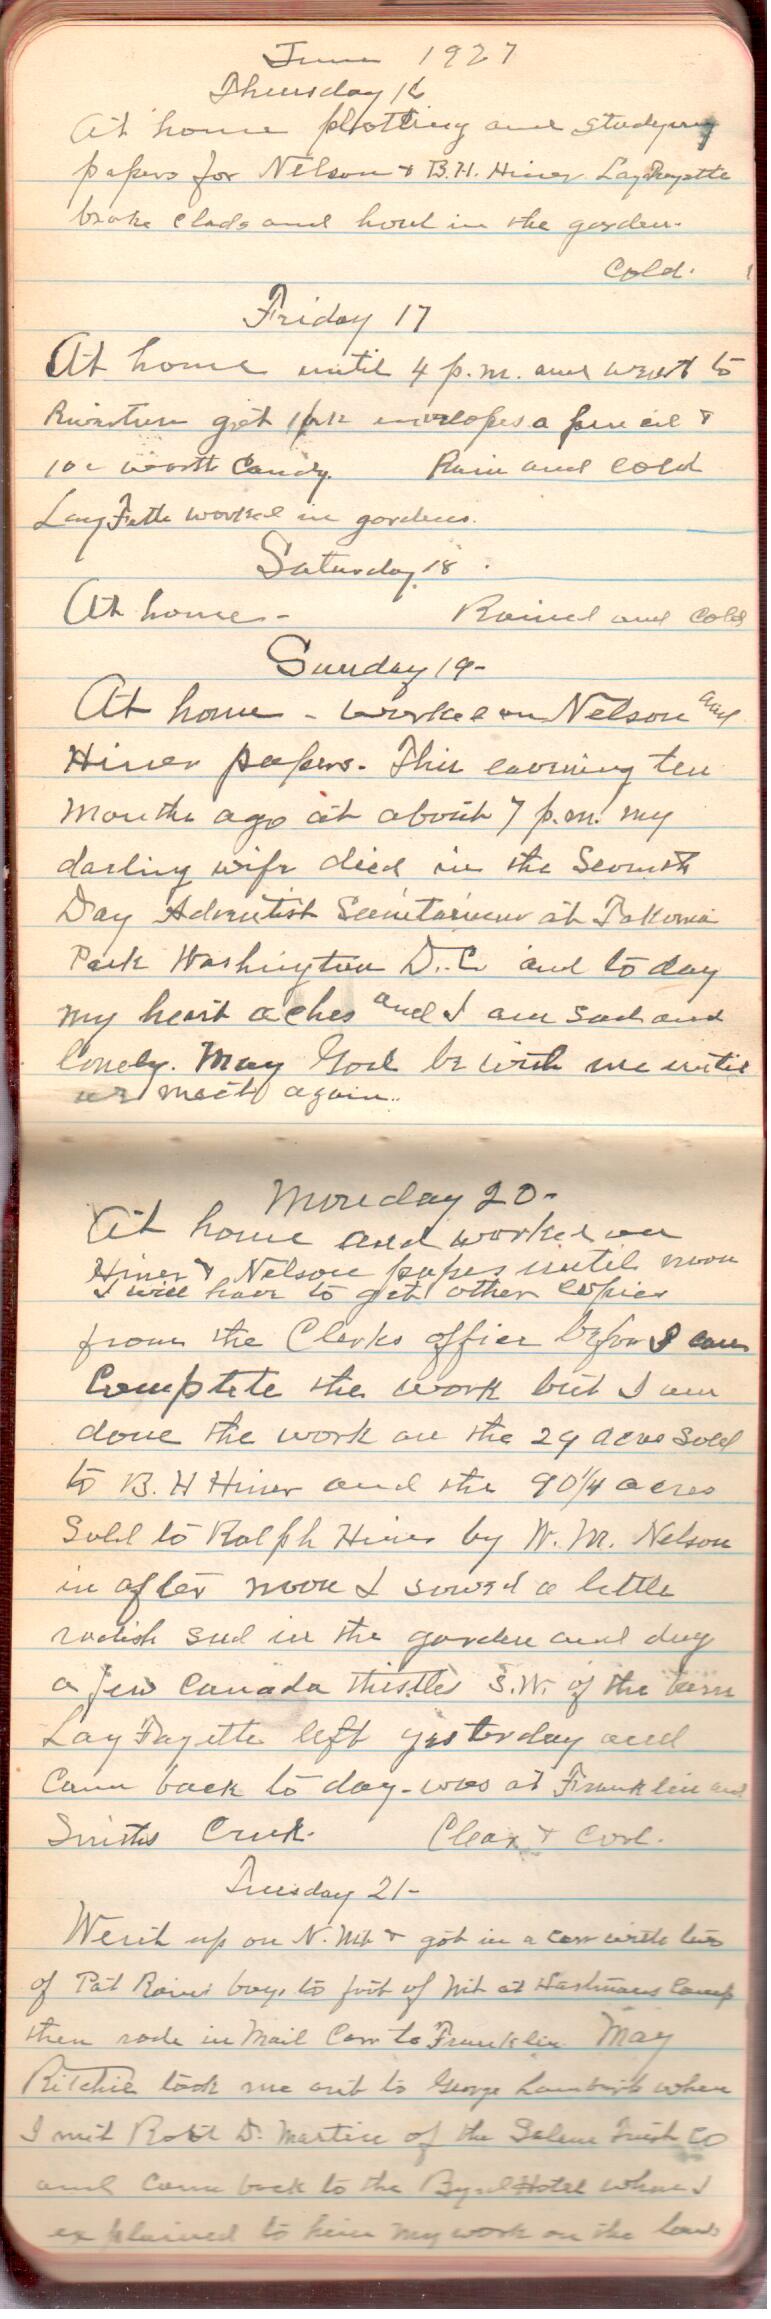 June 1927
Thursday 16
At home plotting and studying
papers for Nelson & B.H. Hiner LayFayette
broke clods and hoed in the garden.
Cold.
Friday 17
At home until 4 p.m. and went to
got 1 pk envelopes a pencil &
10c worth Candy. Rain and cold
LayFette worked in gardens.
Saturday 18
At home - Rained and cold
Sunday 19-
At home - worked on Nelson and
Hiner papers. This evening ten
months ago at about 7 p.m. my
darling wife died in the Seventh
Day Adventist Sanitarium at Takoma
Park Washington D.C. and to day
my heart aches and I am sad and
lonely. May God be with me until
we meet again.
Monday 20-
At home and worked on
Hiner & Nelson papes until noon
I will have to get other copies
from the Clerks office before I can
Complete the work but I am
done the work on the 29 acres sold
to B. H Hiner and the 90 1/4 acres
Sold to Ralph Hiner by W. M. Nelson
in after noon I sowed a little
radish seed in the garden and dug
a few Canada thistles S.W. of the barn
LayFayette left yesterday and
Came back to day - was at Franklin and
Smiths Creek. Clear & Cool.
Tuesday 21-
Went up on N. Mt & got in a car with two
of Pat boys to foot of Mt at Camp
then rode in Mail Car to Franklin May
Ritchie took me out to George where
I met Robt D. Martin of the Salem Trust CO
and came back to the Byrd Hotel where I
explained to him my work on the